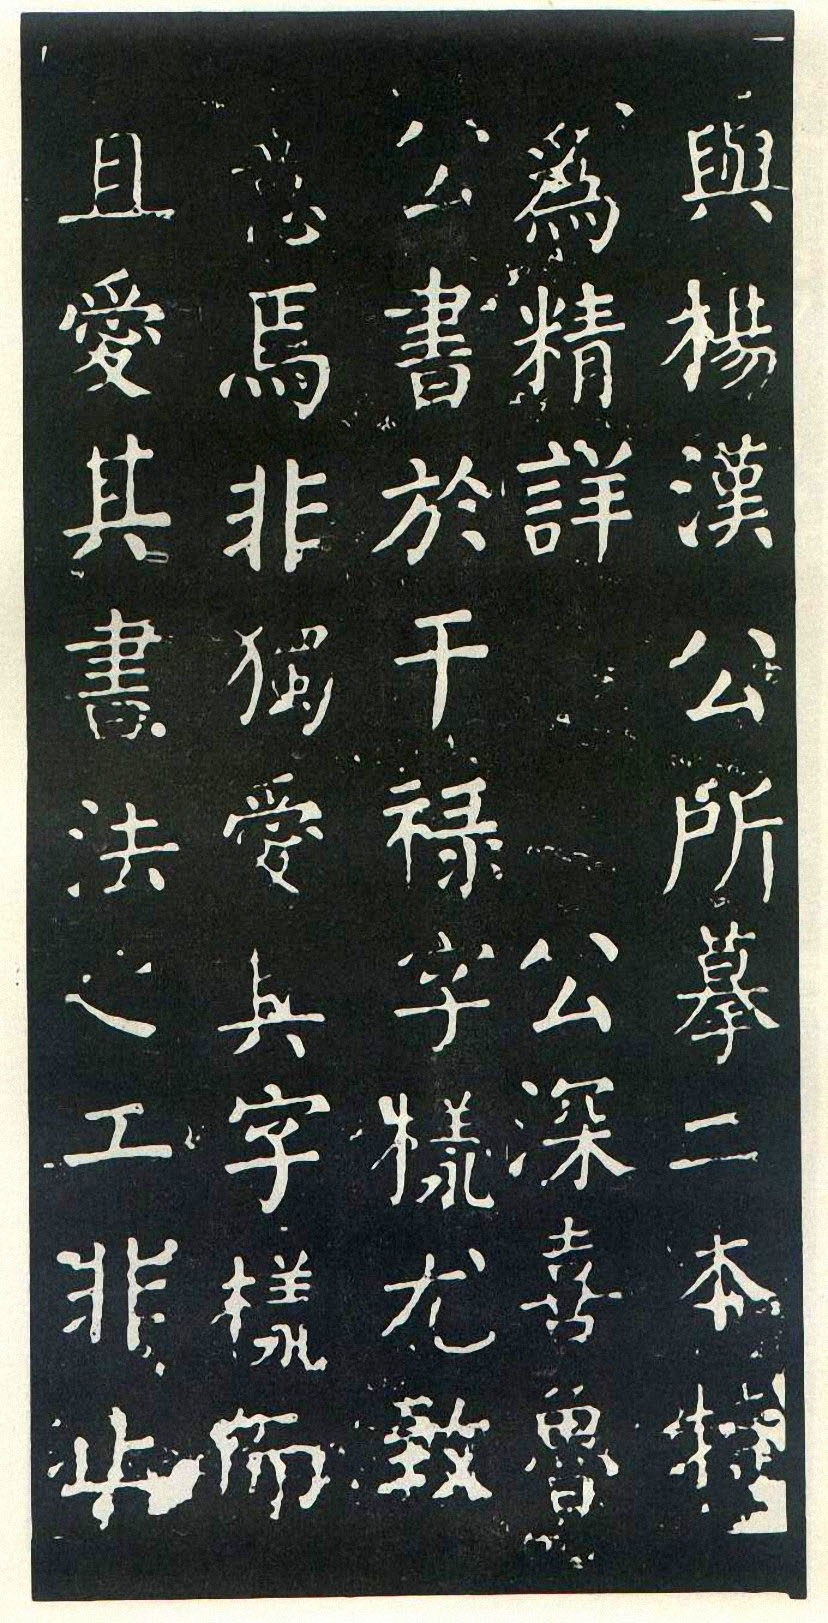 與楊漢公所摹二本特
爲精詳 公深喜魯
公書於干禄字樣尤致
意焉非獨愛其字樣而
且愛其書法之工非止